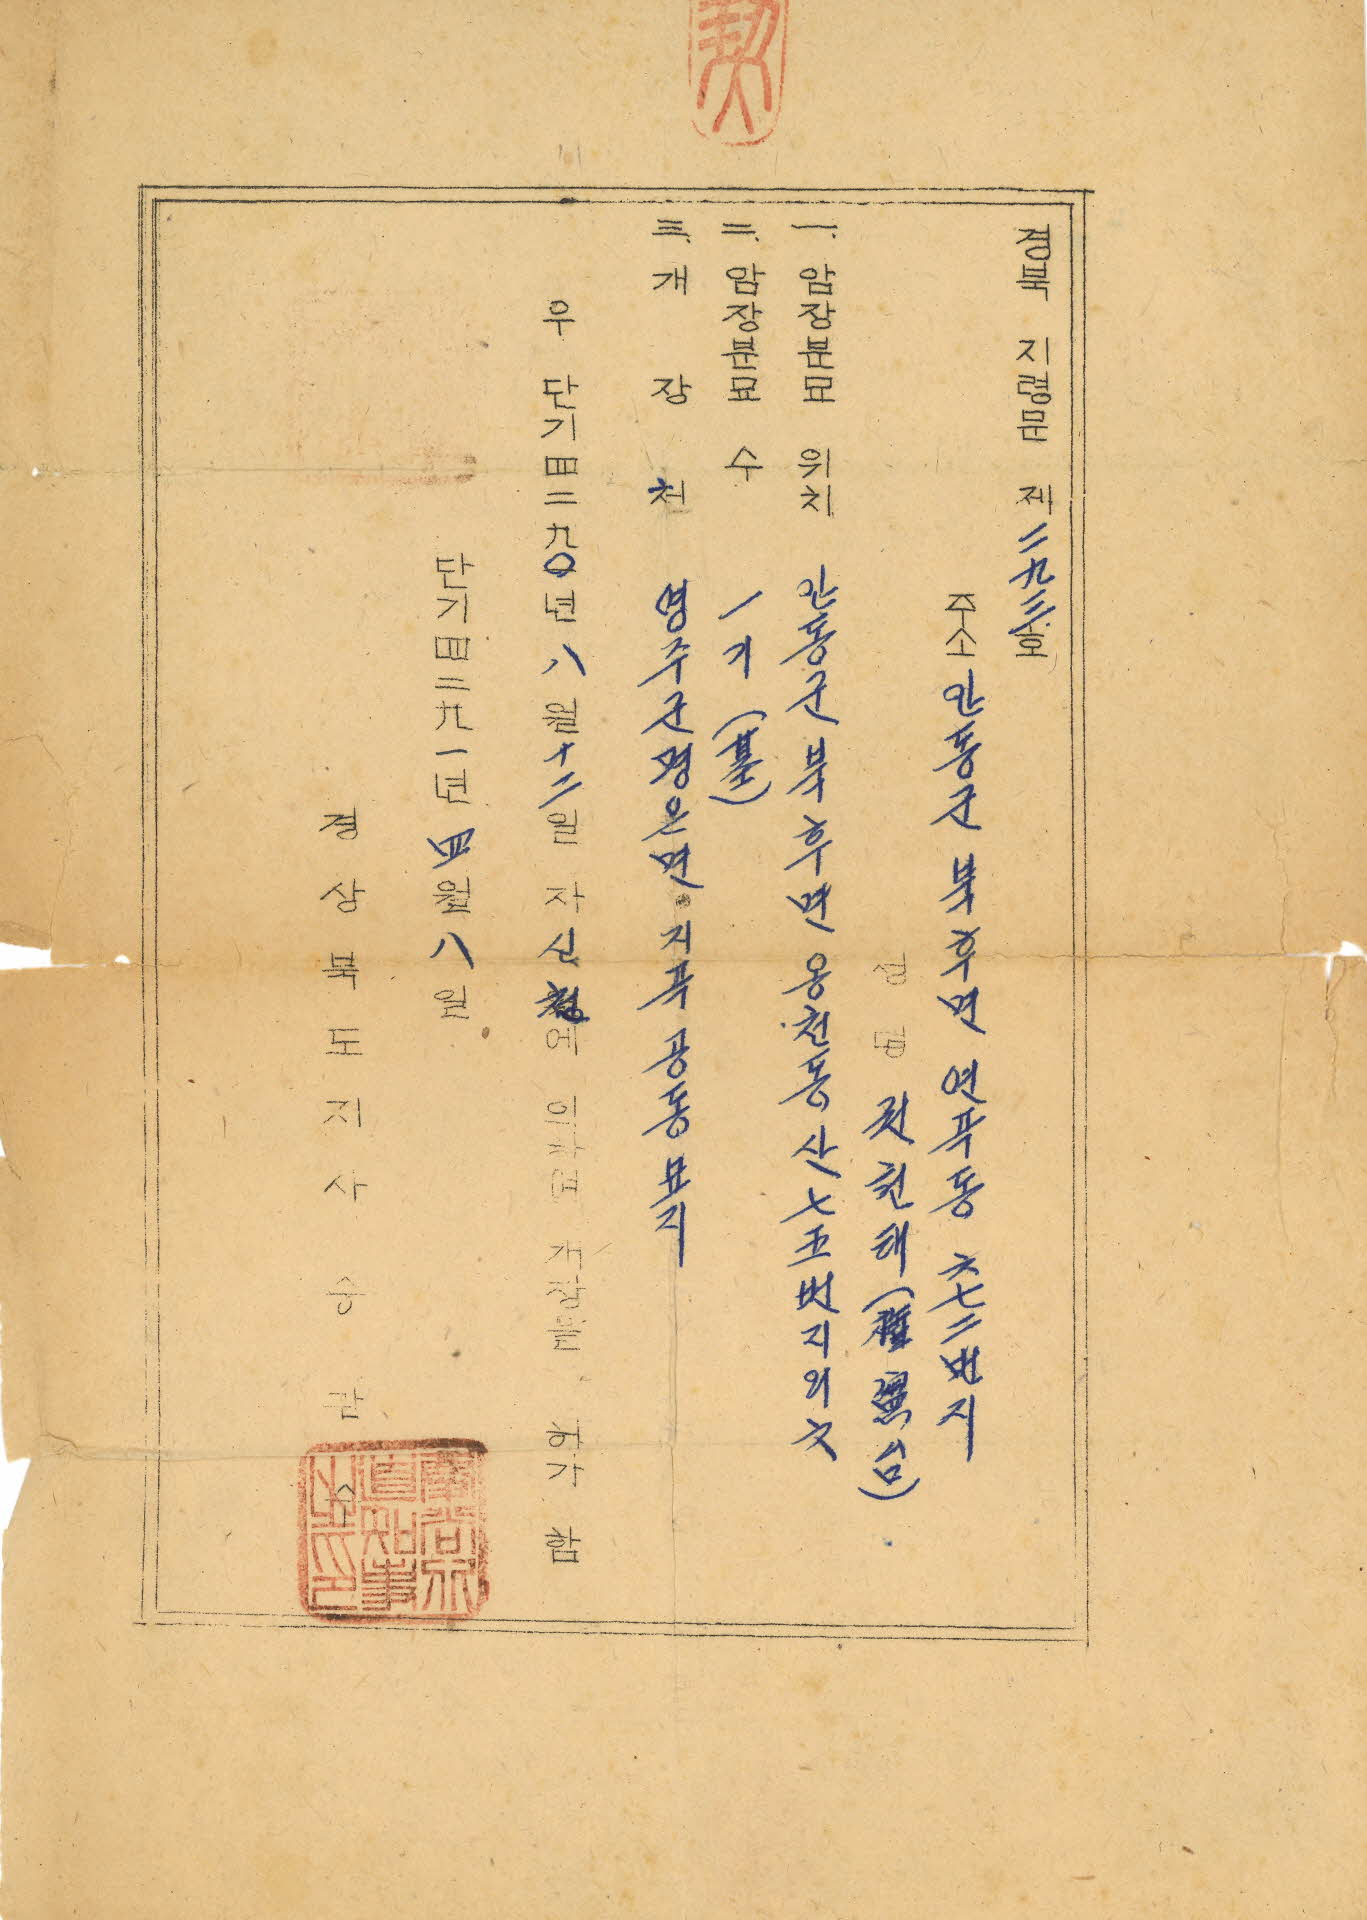 경북 지령문 제二九三호
주소 안동군 북후면 연곡동 六七二번지
성명 권헌태(權憲台)
一. 암장분묘 위치 안동군 북후면 옹천동 산七五번지의 六
二. 암장분묘 수 一기(墓)
三. 개장천 영주군 평은면 지곡 공동묘지
우 단기四二九〇년 八월 十二일자 신청에 의하여 개장을 허가함
단기四二九一년 四월 八일
경상북도지사 송관수
慶尚北道知事之印
契